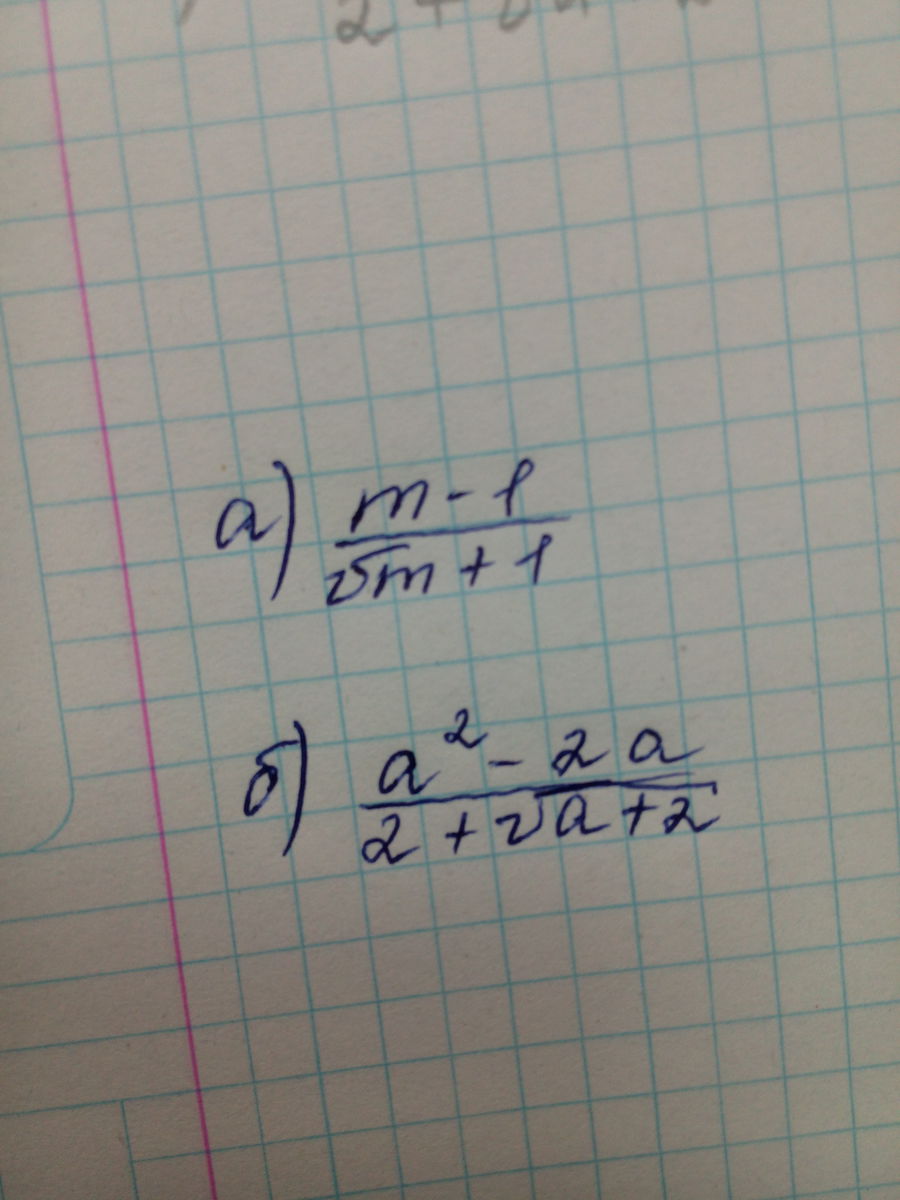 а) m - 1
√m + 1
б) a² - 2a
2 + √a + 2